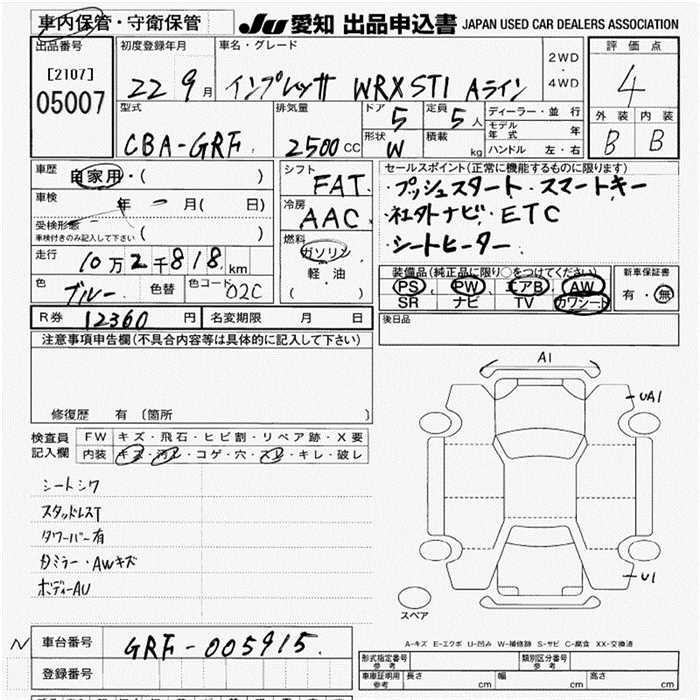 車内保管・守衛保管 JU 愛知 出品申込書 JAPAN USED CAR DEALERS ASSOCIATION
出品番号 初度登録年月 車名・グレード 2WD・4WD 評価点
[2107] 05007 22 9月 インプレッサ WRX STI Aライン 4
型式 排気量 ドア 5 定員 5人 ディーラー・並行 外装 内装
CBA-GRF 2500CC 形状 W 積載 kg モデル年式 年 B B
ハンドル 左・右
車歴 自家用・( ) シフト FAT セールスポイント(正常に機能するものに限ります)
・プッシュスタート・スマートキー
車検 年 月( 日) 冷房 AAC ・社外ナビ・ETC
受検形態 車検付きのみ記入して下さい ( ) 燃料 ガソリン 軽・油 ( ) ・シートヒーター
走行 10万2千818km 装備品(純正品に限り○をつけてください) 新車保証書
色 ブルー 色替 色コード 02C PS PW エアB AW 有・無
SR ナビ TV カワシート
R券 12360円 名変期限 月 日 後日品
注意事項申告欄(不具合内容等は具体的に記入して下さい)
A1
UA1
修復歴 有〔箇所 〕
検査員記入欄 FW キズ・飛石・ヒビ割・リペア跡・X要
内装 キズ・汚レ・コゲ・穴・スレ・キレ・破レ
シートシワ
スタッドレスT
タワーバー有
カミラー・AWキズ
ボディーAU
U1
スペア
A-キズ E-エクボ U-凹み W-補修跡 S-サビ C-腐食 XX-交換済
N 車台番号 GRF-005915
登録番号
形式指定番号 参考 類別区分番号 参考
車庫証明用 参考 長さ cm 幅 cm 高さ cm